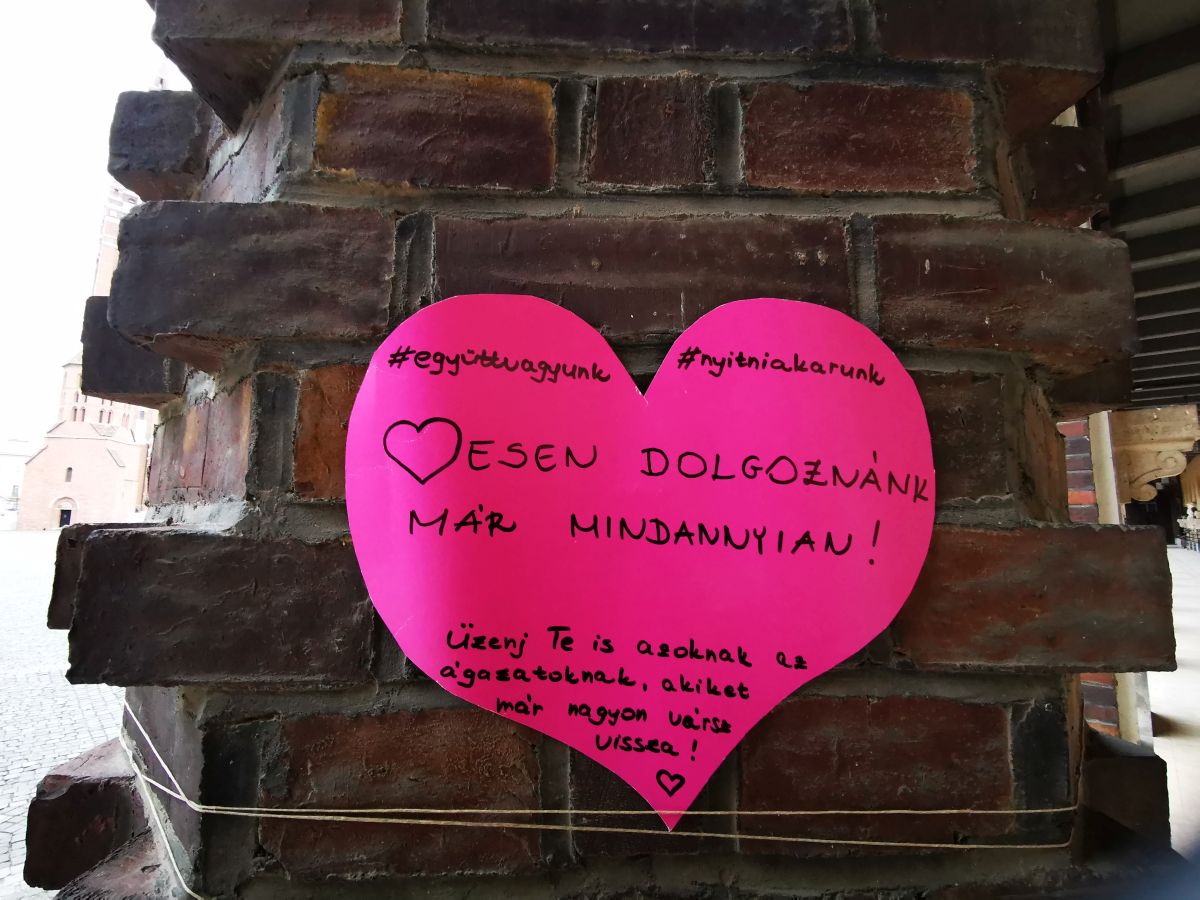 #együttvagyunk #nyitniakarunk
♡ESEN DOLGOZNÁNK
MÁR MINDANNYIAN!
Üzenj Te is azoknak az
ágazatoknak, akiket
már nagyon vársz
vissza!
♡